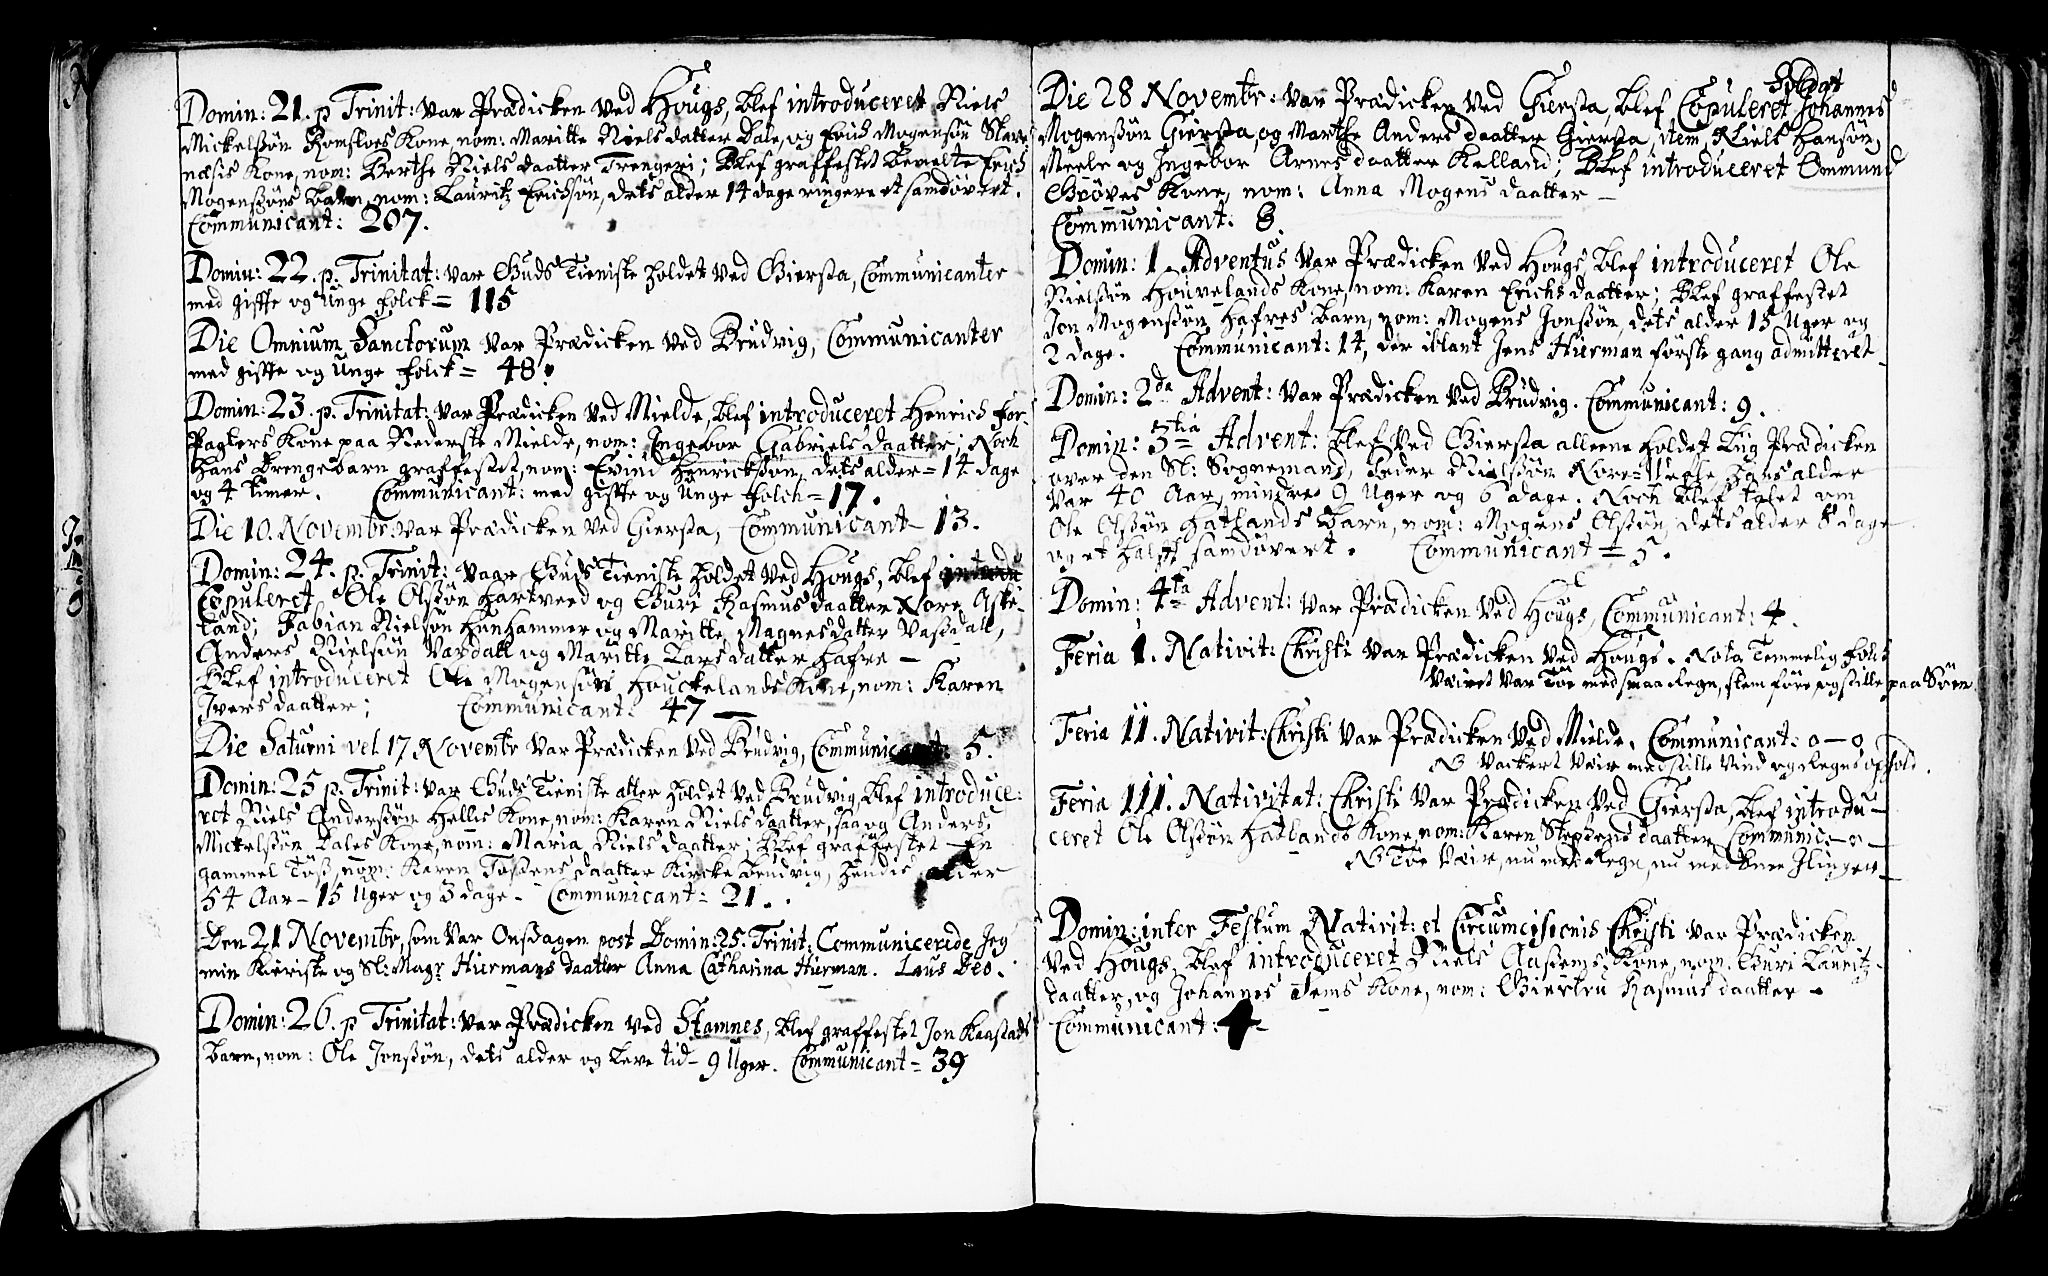 Domin: 21. p Trinit: var Prædicken ved Hougs, blef introduceret Niels
Mickelssøn Romsloes Kone, nom: Maritte Niels datter Dale, og Erich Mogensøn Stare
næsis Kone, nom: Berthe Niels daatter Trengeri; Blef graffestet bemelte Erich
Mogenssøns barn, nom: Lauritz Erichsøn, dets alder 14 dage ringere et samdøvert.
Communicant: 207.
Domin: 22. p. Trinitat: var Guds Tieniste holdet ved Gierssa, Communicanter
med giffte og Unge folck = 115
Die Omnium Sanctorum var Prædicken ved Brudvig, Communicanter
med giffte og Unge folck = 48.
Domin: 23. p. Trinitat: var Prædicken ved Mielde, blef introduceret Henrich For-
paglers Kone paa Nederste Mielde, nom: Ingebor Gabriels daatter; Noch
hans drengebarn graffestet, nom: Evind Henrickssøn, dets alder = 14 dage
og 4 timer. Communicant: med giffte og Unge folch = 17.
Die 10. Novembr: var Prædicken ved Gierssa, Communicant 13.
Domin: 24. p. Trinit: vaar Guds Tieniste holdet ved Hougs, blef introdu
Copuleret Ole Olssøn Hartveed og Guri Rasmus daatter Nore Aske-
land; Fabian Nielsøn Hunhammer og Maritte Magnesdatter Vassdall,
Anders Nielsøn Vasdall og Maritte Larsdatter Hafre –
Blef introduceret Ole Mogensøn Houckelands Kone, nom: Karen
Ivers daatter; Communicant: 47 —
Die Saturni vel 17 Novembr var Prædicken ved Brudvig, Communicant: 5.
Domin: 25 p. Trinit: var Guds Tieniste atter holdet ved Brudvig, blef introduce-
ret Niels Anderssøn Hellis Kone, nom: Karen Niels daatter, saa og Anders
Mickelssøn Dales Kone, nom: Maria Niels daatter; Blef graffestet En
gammel Töss, nom: Karen Tostens daatter Kircke Brudvig, hendis alder
54 Aar – 15 Uger og 3 dage – Communicant: 21.
Den 21 Novembr, som var Onsdagen post Domin: 25. Trinit: Communicerede Jeg
min Kieriste og Sl: Magr Hiermans daatter Anna Catharina Hierman. Laus Deo.
Domin: 26. p Trinitat: var Prædicken ved Stamnes, blef graffestet Jon Kaastads
barn, nom: Ole Jonssøn, dets alder og leve tid – 9 Uger. Communicant = 39
Soldat
Die 28 Novembr: var Prædicken ved Gierssa, blef Copuleret Johannes
Mogenssøn Gierssa, og Marthe Anders daatter Gierssa, item, Niels Hansøn
Meele og Ingebor Arnes daatter Kalland; Blef introduceret Ommund
Grøves Kone, nom: Anna Mogens daatter –
Communicant: 8.
Domin: 1 Adventus var Prædicken ved Hougs, blef introduceret Ole
Nielssøn Houvelands Kone, nom: Karen Erichs daatter; Blef graffestet
Jon Mogenssøn Hafres barn, nom: Mogens Jonssøn, dets alder 15 Uger og
2 dage. Communicant: 14, der iblant Jens Hierman første gang admitteret.
Domin: 2da Advent: var Prædicken ved Brudvig. Communicant: 9.
Domin: 3tia Advent: blef ved Gierssa alleene holdet Liig Prædicken
over den Sl: Sognemand, Peder Nielssøn hans alder
var 40 Aar, mindre 9 Uger og 6 dage. Noch blef talet om
Ole Olssøn Hatlands barn, nom: Mogens Olssøn, dets alder 8 dage
og et halfft samdøvert. Communicant = 5.
Domin: 4ta Advent: var Prædicken ved Hougs, Communicant: 4.
Feria 1. Nativit: Christi var Prædicken ved Hougs. Nota Temmelig folch
Væiret var Tøe med smaa Regn, slem føre, og stille paa Søen.
Feria II. Nativit: Christi var Prædicken ved Mielde. Communicant: 0 – 0
NB Vackert Væir med stille Vind og Regns ophold.
Feria III. Nativitat: Christi var Prædicken ved Gierssa, blef introdu-
ceret Ole Olssøn Hatlands Kone, nom: Karen Stephens daatter, Communic: – 0 –
NB Tøe Væir, nu med Regn, nu med Snee Ilinger –
Domin: inter Festum Nativit: et Circumcisionis Christi var Prædicken
ved Hougs, blef introduceret Niels Kone, nom: Guri Lauritz-
daatter, og Johannes Kone, nom: Giertru Rasmus daatter –
Communicant: 4 –